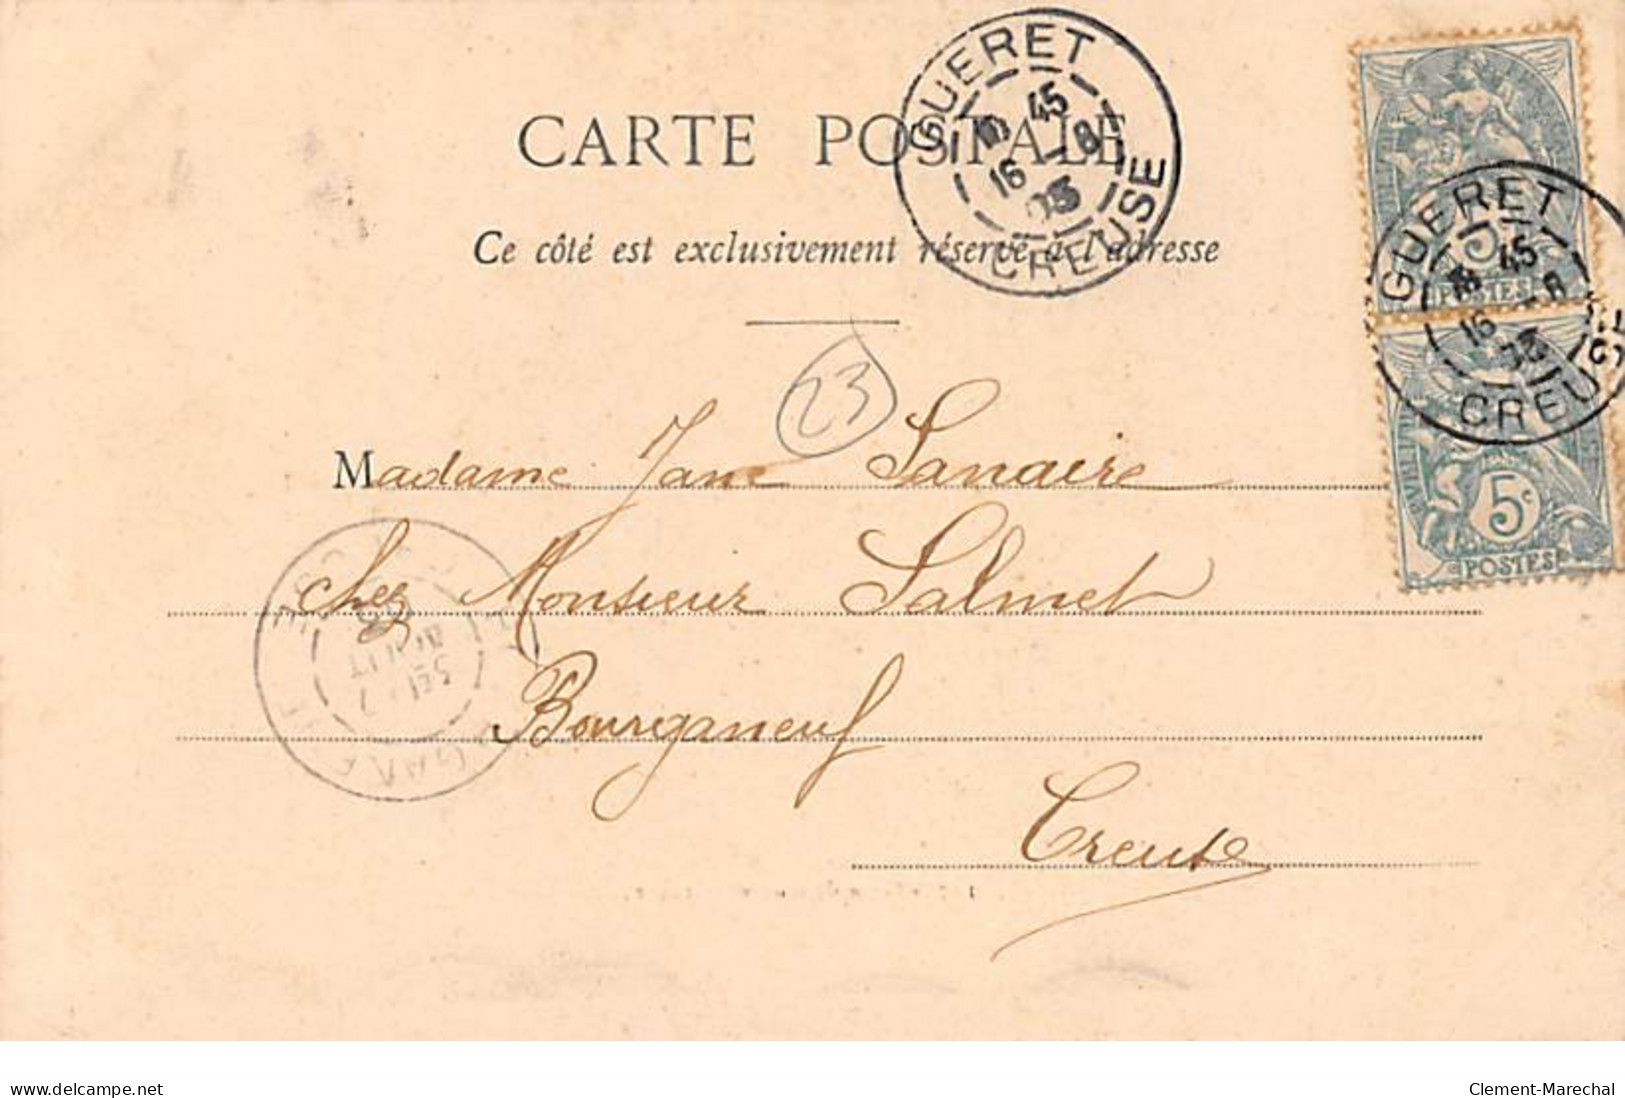 GUERET
45
16 - 8
03
CREUSE
CARTE POSTALE
Ce côté est exclusivement réservé à l'adresse
5c
POSTES
GUERET
45
16 - 8
CREUSE
5c
POSTES
23
Madame Jane Lanaire
chez Monsieur Salmet
Bourganeuf
Creuse
www.delcampe.net
Clement-Marechal